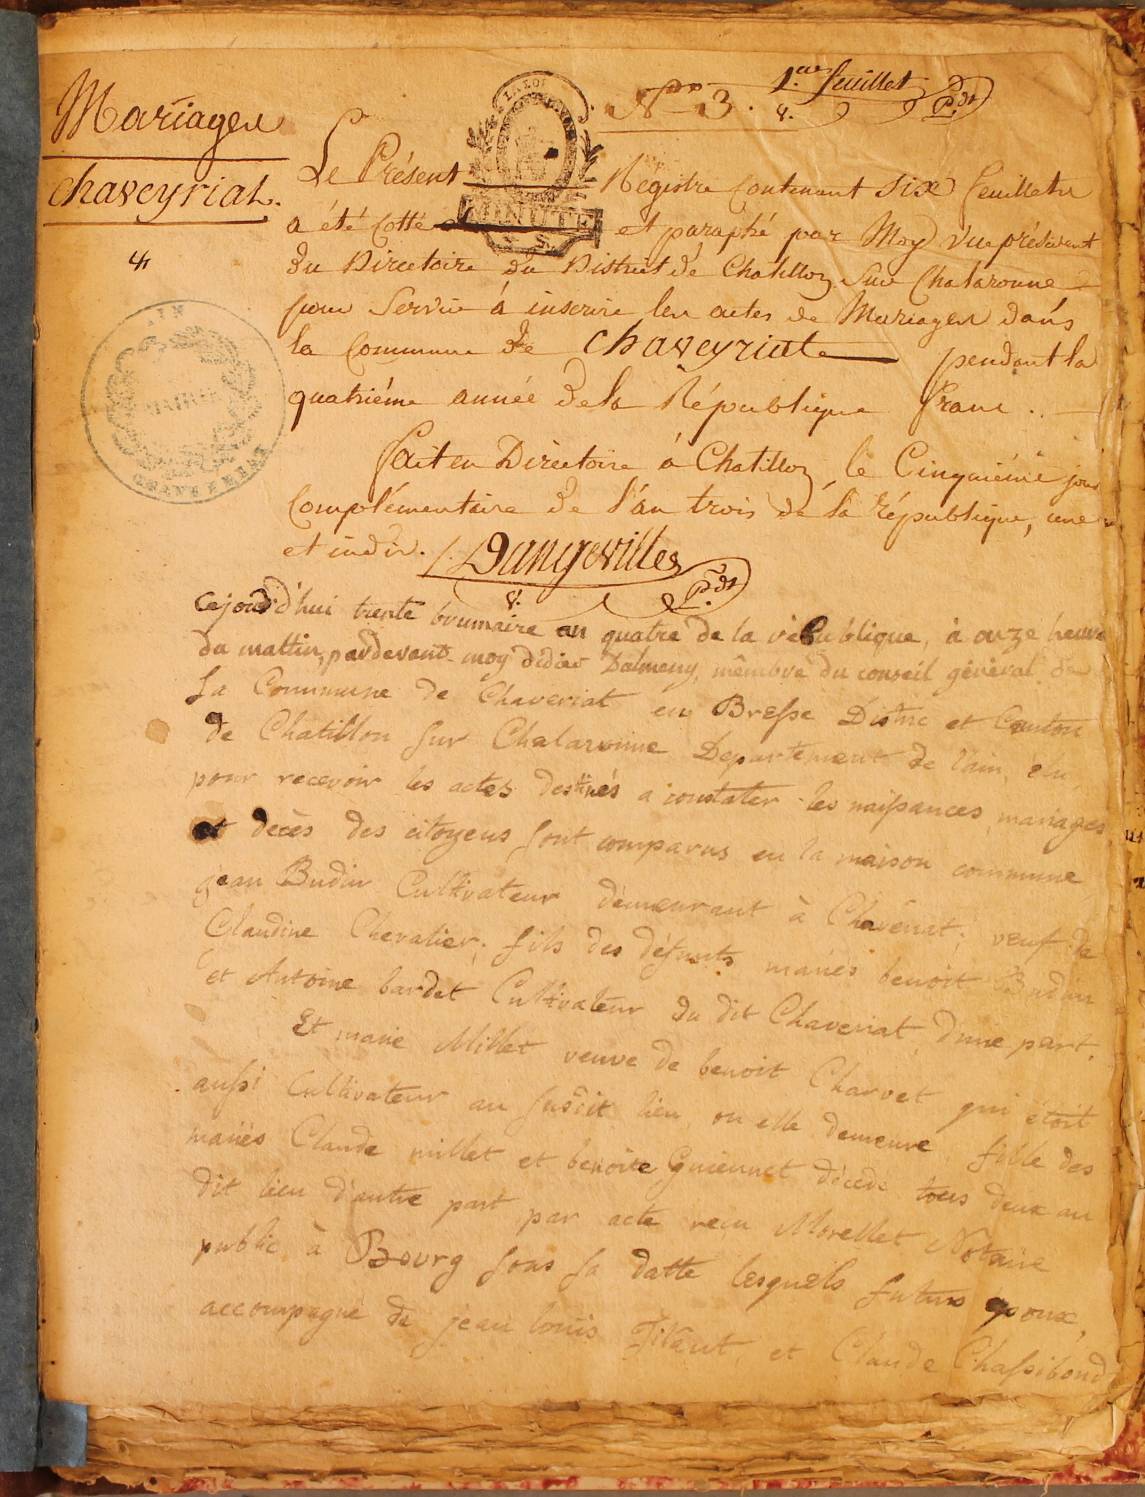 Mariages
Chaveyriat.
4
1er feuillet
N° 3.
Le Présent Régistre contenant six feuillets
a été cotté et paraphé par Moy vice président
du Directoire du District de Chatillon sur Chalaronne
pour servir à inscrire les actes de Mariages dans
la Commune de Chaveyriat pendant la
quatriéme année de la République franc..
Fait en Directoire à Chatillon le Cinquiéme jour
Complémentaire de l'an trois de la république, une
et indiv. Dangevilles
LA LOI
MINUTE
AIN
MAIRIE
CHAVEYRIAT
cejourd'hui trente brumaire an quatre de la république, à onze heure
du mattin, pardevant moy didier Dalmeny, mêmbre du conseil général de
la Commune de Chaveriat en Bresse District et Canton
de Chatillon sur Chalaronne Departement de l'ain, élu
pour recevoir les actes destinés a constater les naissances, mariages
et décès des citoyens sont comparus en la maison commune
jean Budin Cultivateur démeurant à Chavériat; veuf de
Claudine Chevalier; fils des défunts mariés benoit Budin
et Antoine bardet Cultivateur du dit Chaveriat d'une part.
Et marie Millet veuve de benoit Charvet qui étoit
aussi Cultivateur au susdit lieu ou elle demeure, fille des
mariés Claude millet et benoite Guiennet décédé tous deux au
dit lieu d'autre part par acte recu Morellet Notaire
public à Bourg sous sa datte lesquels futurs epoux,
accompagné de jean louis et Claude